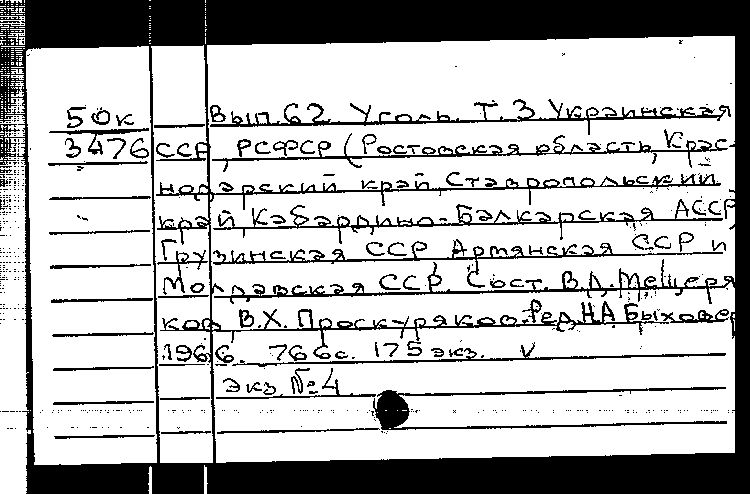 50к Вып.62. Уголь. Т. 3. Украинская
3476 ССР, РСФСР (Ростовская область, Крас-
нодарский край, Ставропольский
край, Кабардино-Балкарская АССР,
Грузинская ССР, Армянская ССР и
Молдавская ССР. Сост. В.Д. Мещеря
ков, В.Х. Проскуряков. Ред. Н.А. Быховер
1966. 766с. 175 экз. V
Экз. №4.